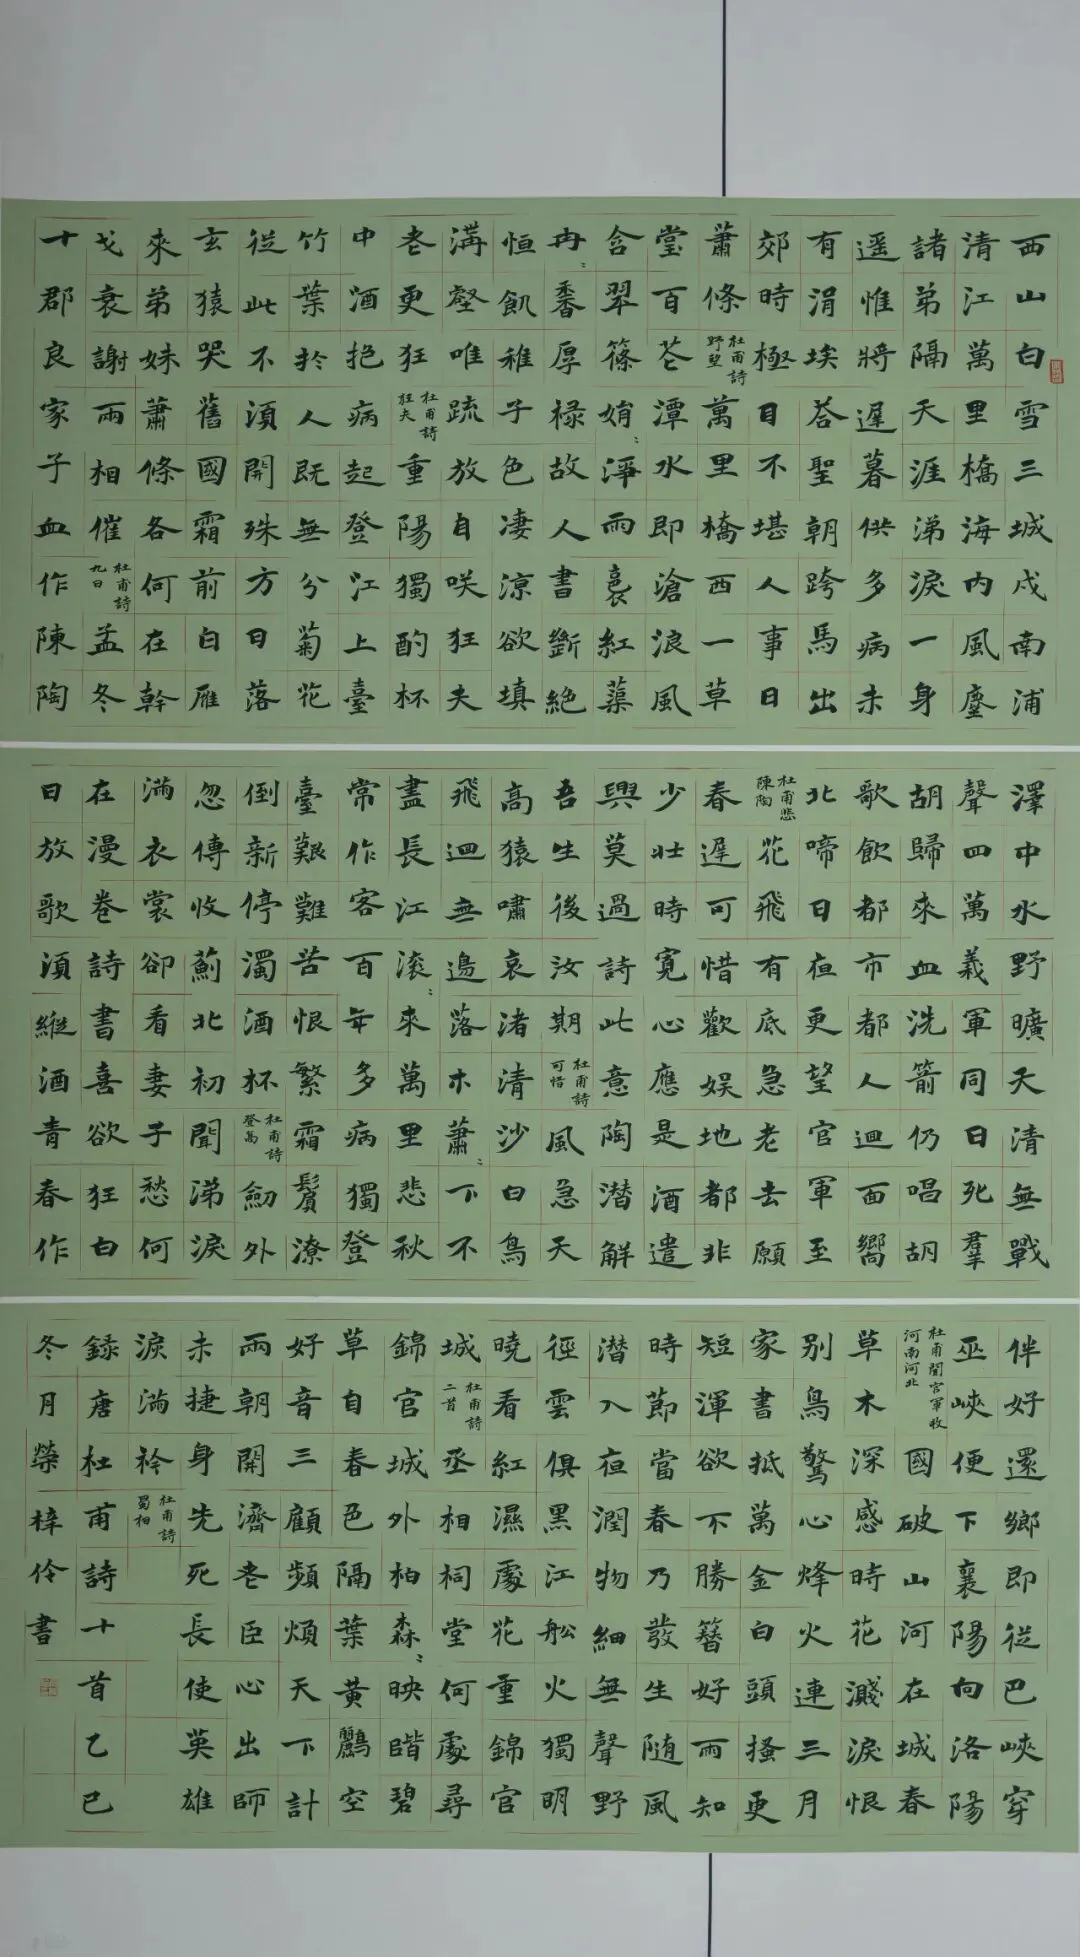 西山白雪三城戍南浦
清江萬里橋海内風塵
諸弟隔天涯涕淚一身
遥惟將遲暮供多病未
有涓埃荅聖朝跨馬出
郊時極目不堪人事日
蕭條杜甫詩野望萬里橋西一草
堂百花潭水即滄浪風
含翠篠娟〻淨雨裛紅蕖
冉〻香厚禄故人書斷絶
恒飢稚子色凄涼欲填
溝壑唯疏放自咲狂夫
老更狂杜甫詩狂夫重陽獨酌杯
中酒抱病起登江上臺
竹葉扵人既無分菊花
從此不須開殊方日落
玄猿哭舊國霜前白雁
來弟妹蕭條各何在幹
戈衰謝兩相催杜甫詩九日孟冬
十郡良家子血作陳陶
澤中水野曠天清無戰
聲四萬義軍同日死羣
胡歸來血洗箭仍唱胡
歌飲都市都人迴面嚮
北啼日夜更望官軍至
杜甫悲陳陶花飛有底急老去願
春遲可惜歡娱地都非
少壯時寬心應是酒遣
興莫過詩此意陶潜解
吾生後汝期杜甫詩可惜風急天
高猿嘯哀渚清沙白鳥
飛迴無邊落木蕭〻下不
盡長江滚〻來萬里悲秋
常作客百年多病獨登
臺艱難苦恨繁霜鬢潦
倒新停濁酒杯杜甫詩登高劒外
忽傳收薊北初聞涕淚
滿衣裳卻看妻子愁何
在漫卷詩書喜欲狂白
日放歌須縱酒青春作
伴好還鄉即從巴峽穿
巫峽便下襄陽向洛陽
杜甫聞官軍收河南河北國破山河在城春
草木深感時花濺淚恨
别鳥驚心烽火連三月
家書抵萬金白頭搔更
短渾欲不勝簪好雨知
時節當春乃發生随風
潜入夜潤物細無聲野
徑雲俱黑江舩火獨明
曉看紅濕處花重錦官
城杜甫詩二首丞相祠堂何處尋
錦官城外柏森〻映階碧
草自春色隔葉黄鸝空
好音三顧頻煩天下計
兩朝開濟老臣心出師
未捷身先死長使英雄
淚滿衿杜甫詩蜀相
録唐杜甫詩十首乙巳
冬月榮梓伶書